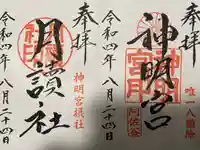 奉拝
唯一八難除
神明宮
神明宮
阿佐谷
令和四年八月二十四日
奉拝
月讀社
神明宮摂社
令和四年八月二十四日